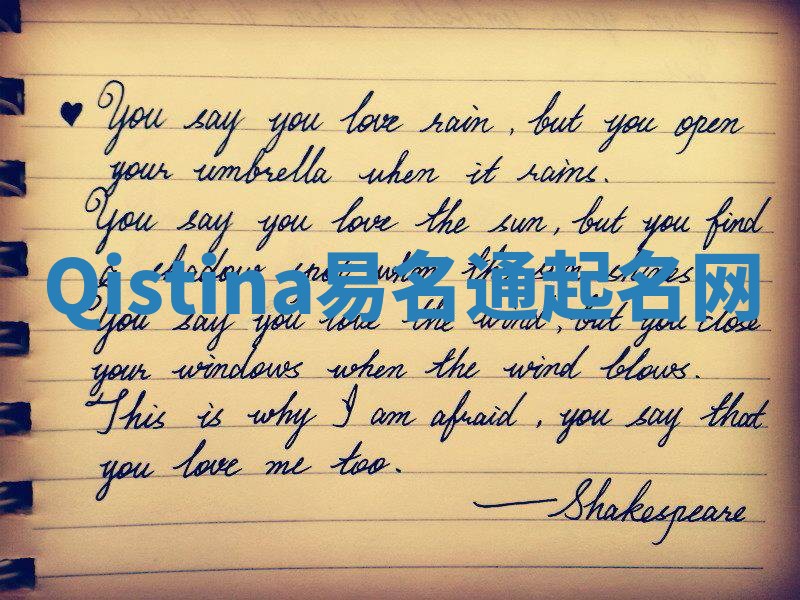 ♥ You say you love rain, but you open
your umbrella when it rains.
You say you love the sun, but you find
a shadow spot when the sun shines.
Qistina易名通起名网
You say you love the wind, but you close
your windows when the wind blows.
This is why I am afraid, you say that
you love me too.
— Shakespeare